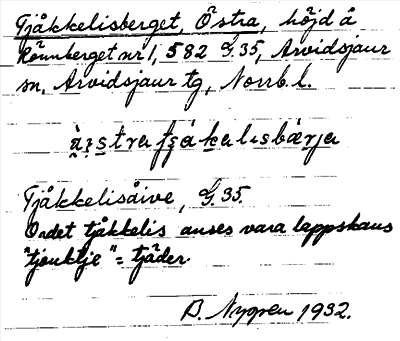 Tjåkkelisberget, Östra, höjd å
Rönnberget nr 1, 582 G.35, Arvidsjaur
sn, Arvidsjaur tg, Norrb. l.
Tjåkkelisåive, G.35.
Ordet tjåkkelis anses vara lappskans
"tjouktje" = tjäder.
B. Nygren 1932.